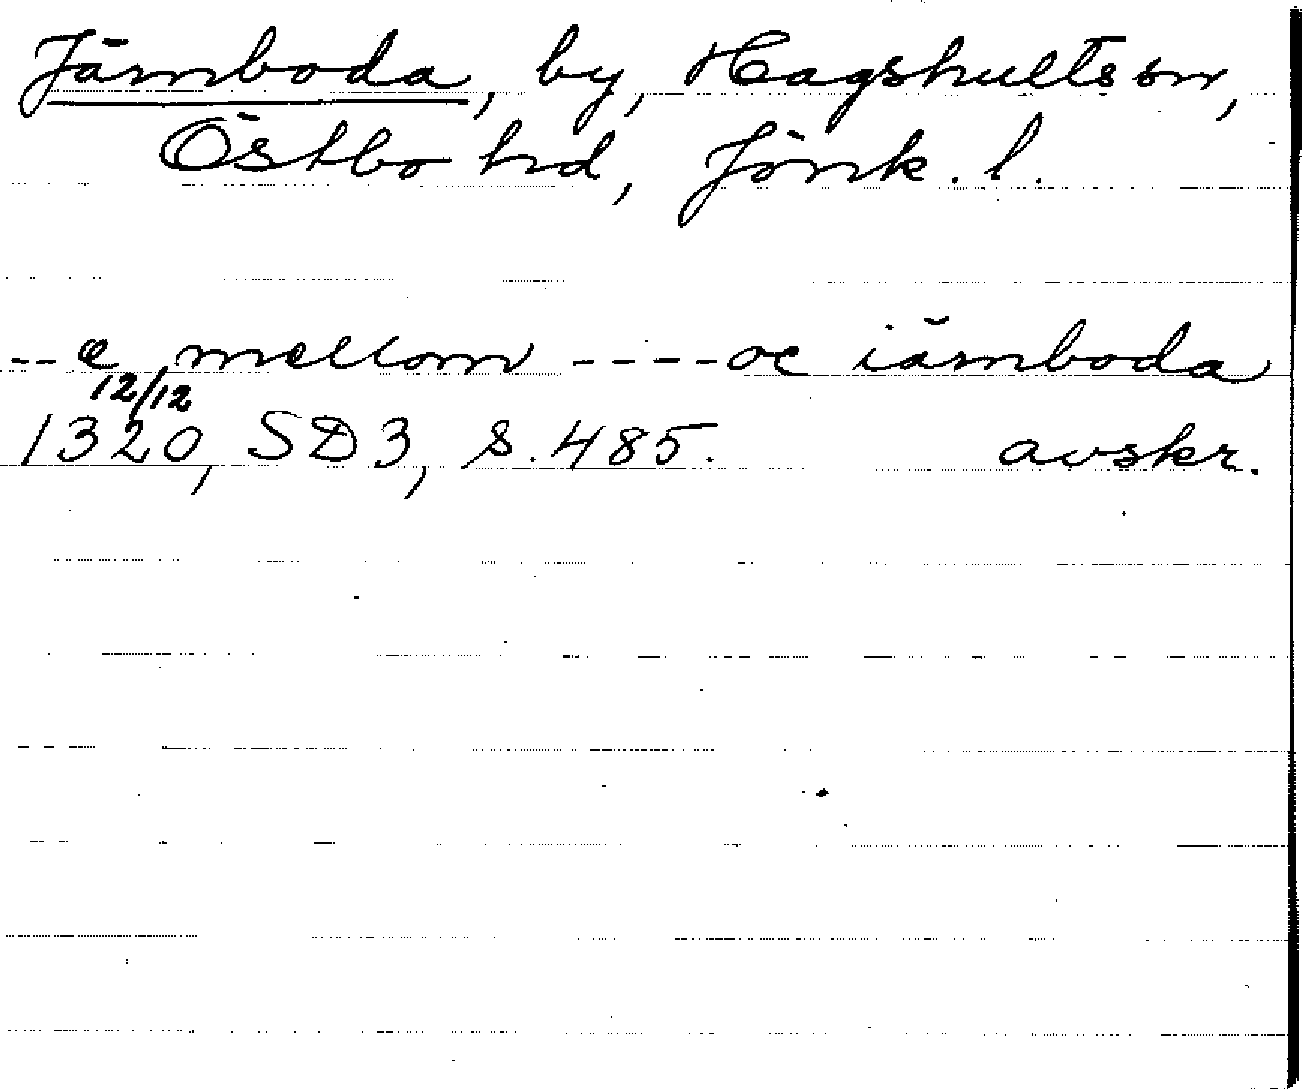 Jämboda, by, Hagshults sn,
Östbo hd, Jönk. l.
-- e mellom ---- oc iämboda
12/12
1320, SD 3, s. 485. avskr.